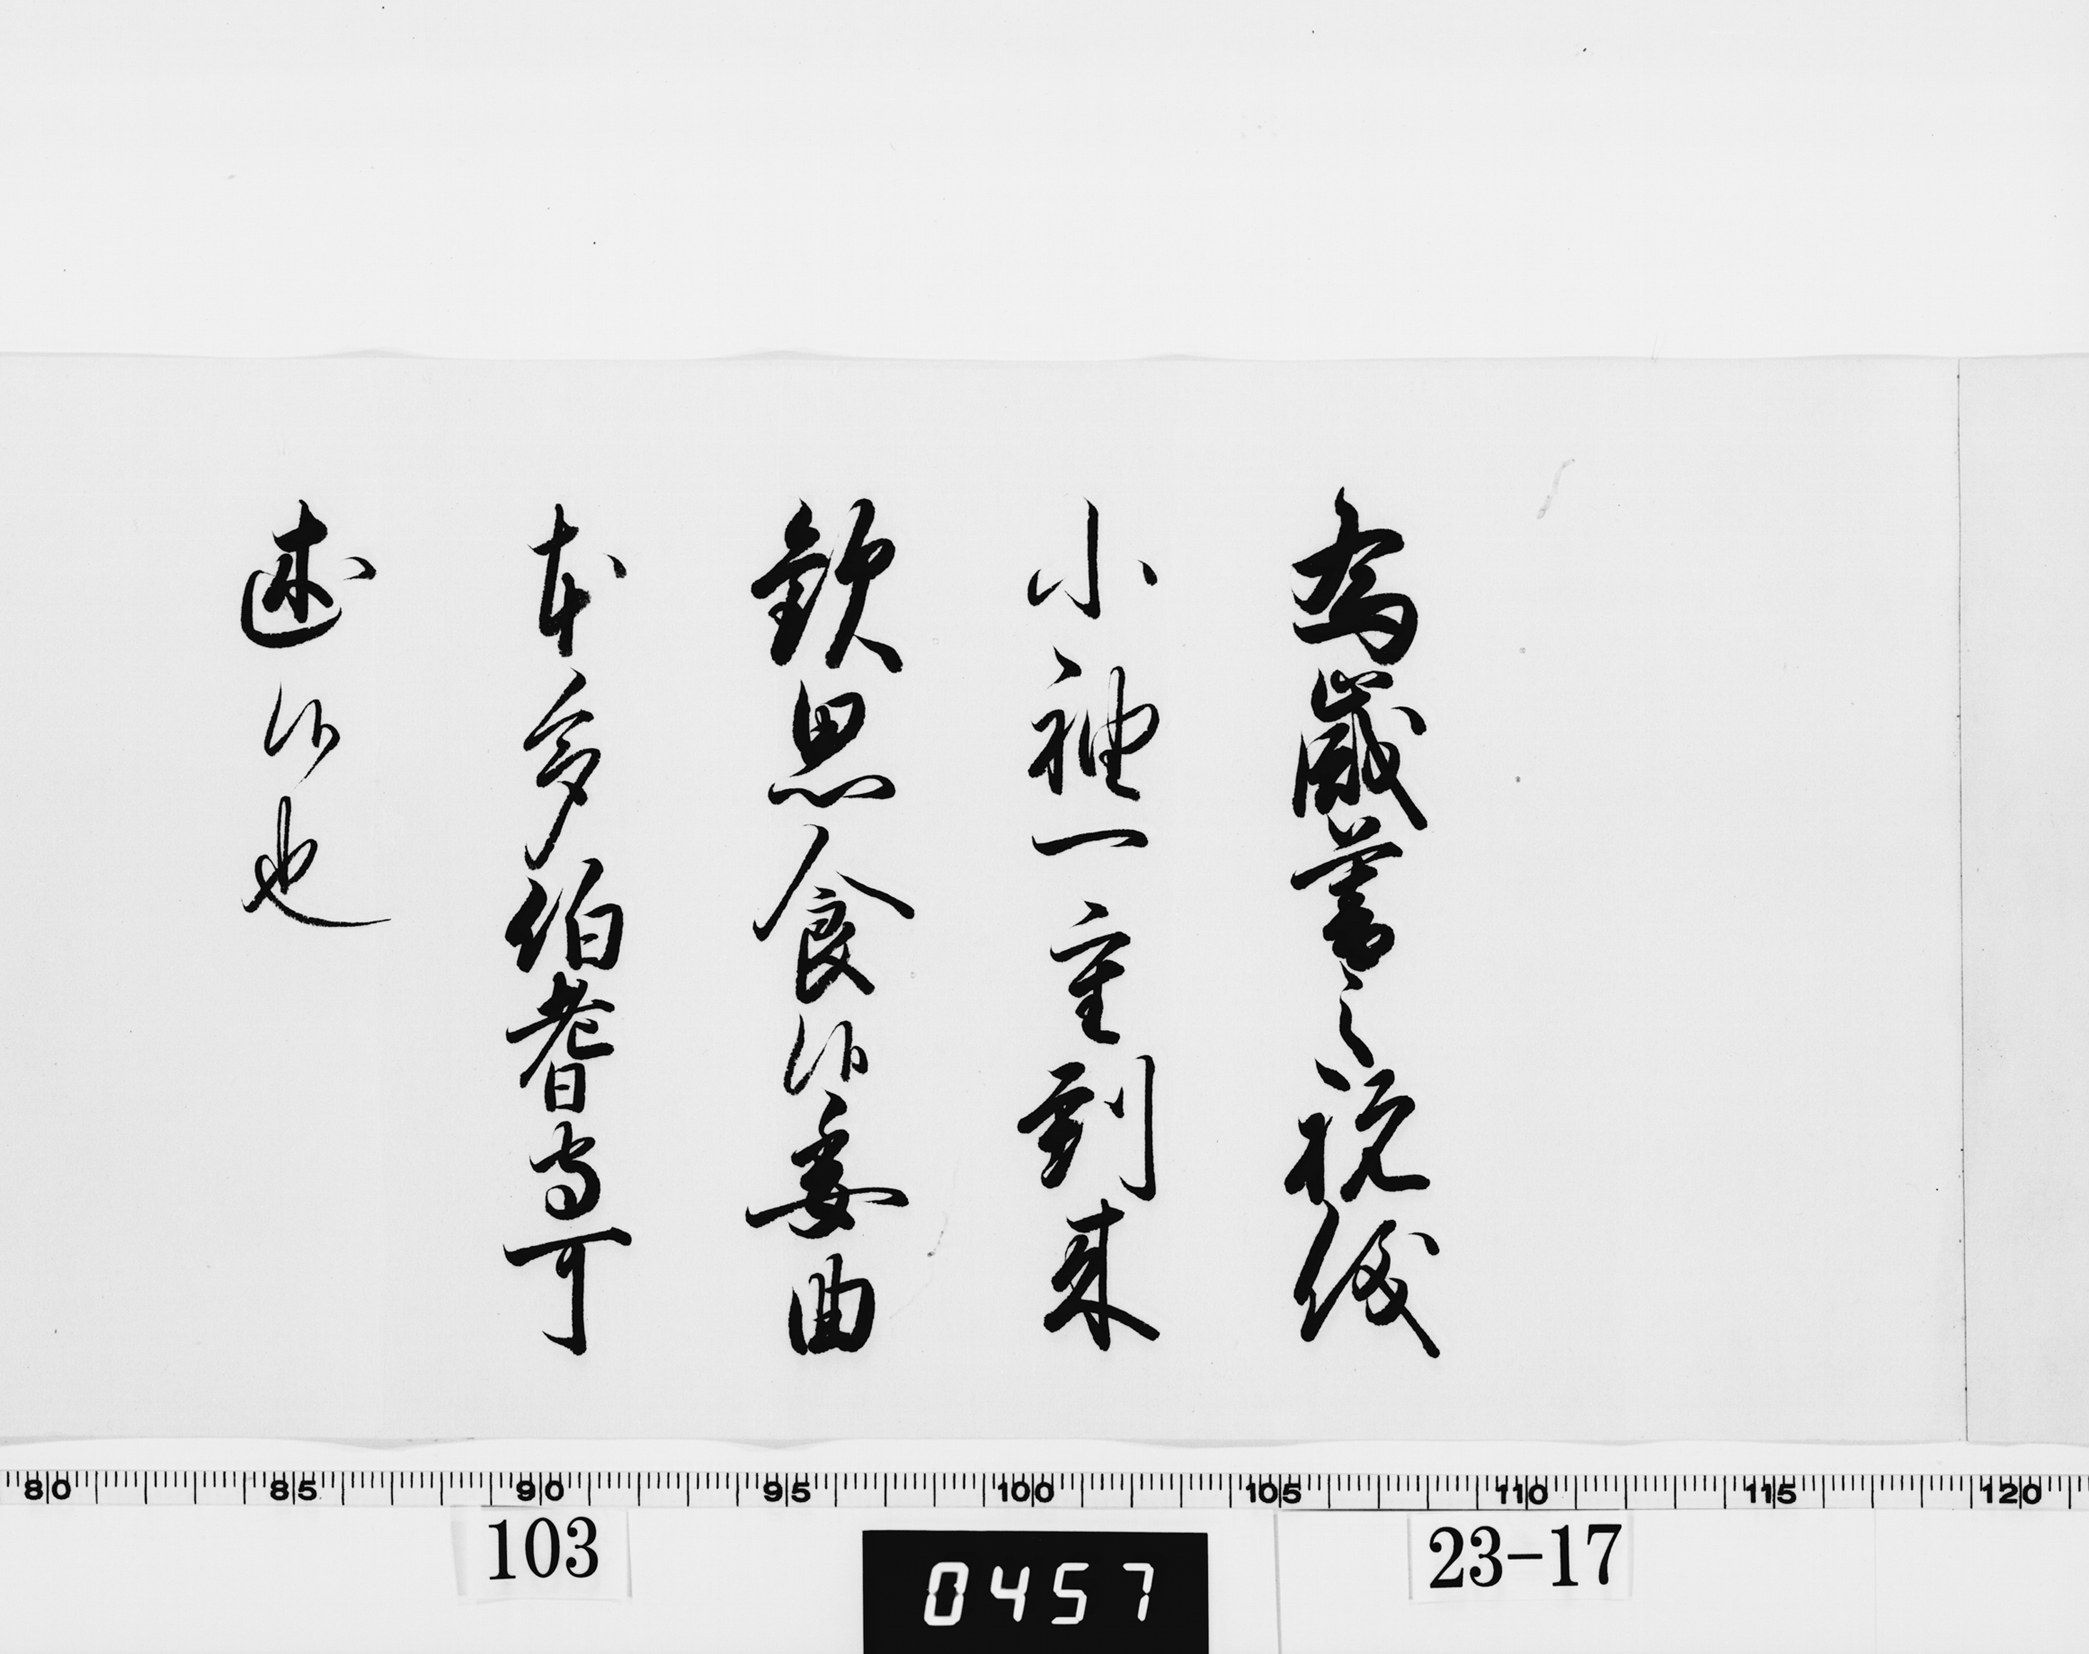 為歳暮之祝儀
小袖一重到来
欣思食候委曲
本多伯耆守可
述候也
80 85 90 95 100 105 110 115 120
103
0457
23-17